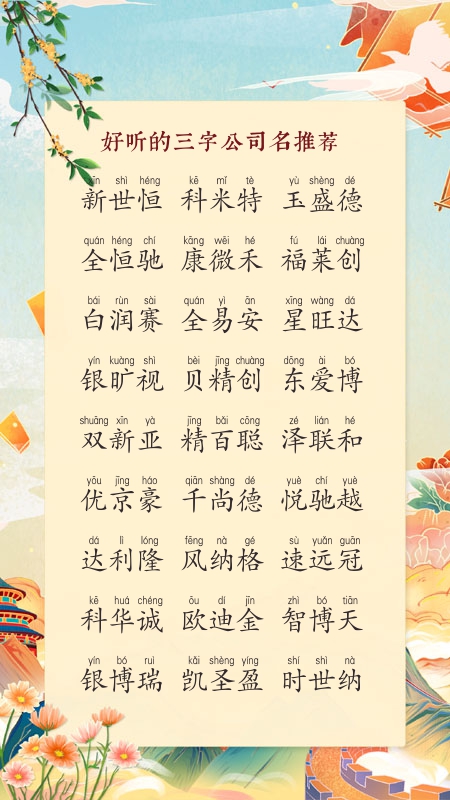 好听的三字公司名推荐
xīn shì héng kē mǐ tè yù shèng dé
新世恒 科米特 玉盛德
quán héng chí kāng wēi hé fú lái chuàng
全恒驰 康微禾 福莱创
bái rùn sài quán yì ān xīng wàng dá
白润赛 全易安 星旺达
yín kuàng shì bèi jīng chuàng dōng ài bó
银旷视 贝精创 东爱博
shuāng xīn yà jīng bǎi cōng zé lián hé
双新亚 精百聪 泽联和
yōu jīng háo qiān shàng dé yuè chí yuè
优京豪 千尚德 悦驰越
dá lì lóng fēng nà gé sù yuǎn guān
达利隆 风纳格 速远冠
kē huá chéng ōu dí jīn zhì bó tiān
科华诚 欧迪金 智博天
yín bó ruì kǎi shèng yíng shí shì nà
银博瑞 凯圣盈 时世纳